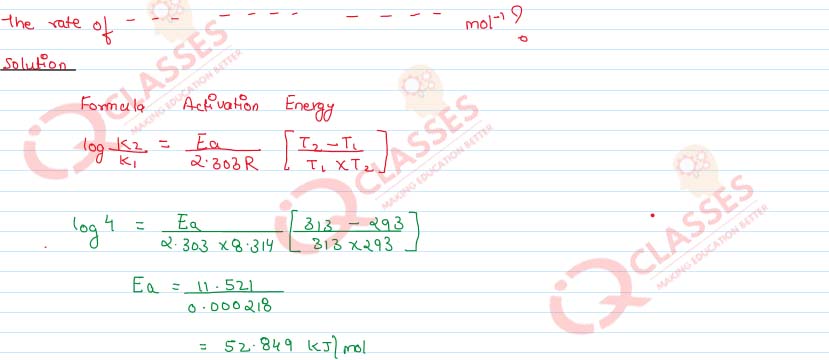 the rate of - - - - - - - - - - - mol⁻¹ ?
Solution
Formula Activation Energy
log K2/K1 = Ea/2.303R [T2-T1/T1×T2]
log 4 = Ea/2.303×8.314 [313-293/313×293]
Ea = 11.521/0.000218
= 52.849 KJ/mol
IQ CLASSES
MAKING EDUCATION BETTER
IQ CLASSES
MAKING EDUCATION BETTER
IQ CLASSES
MAKING EDUCATION BETTER